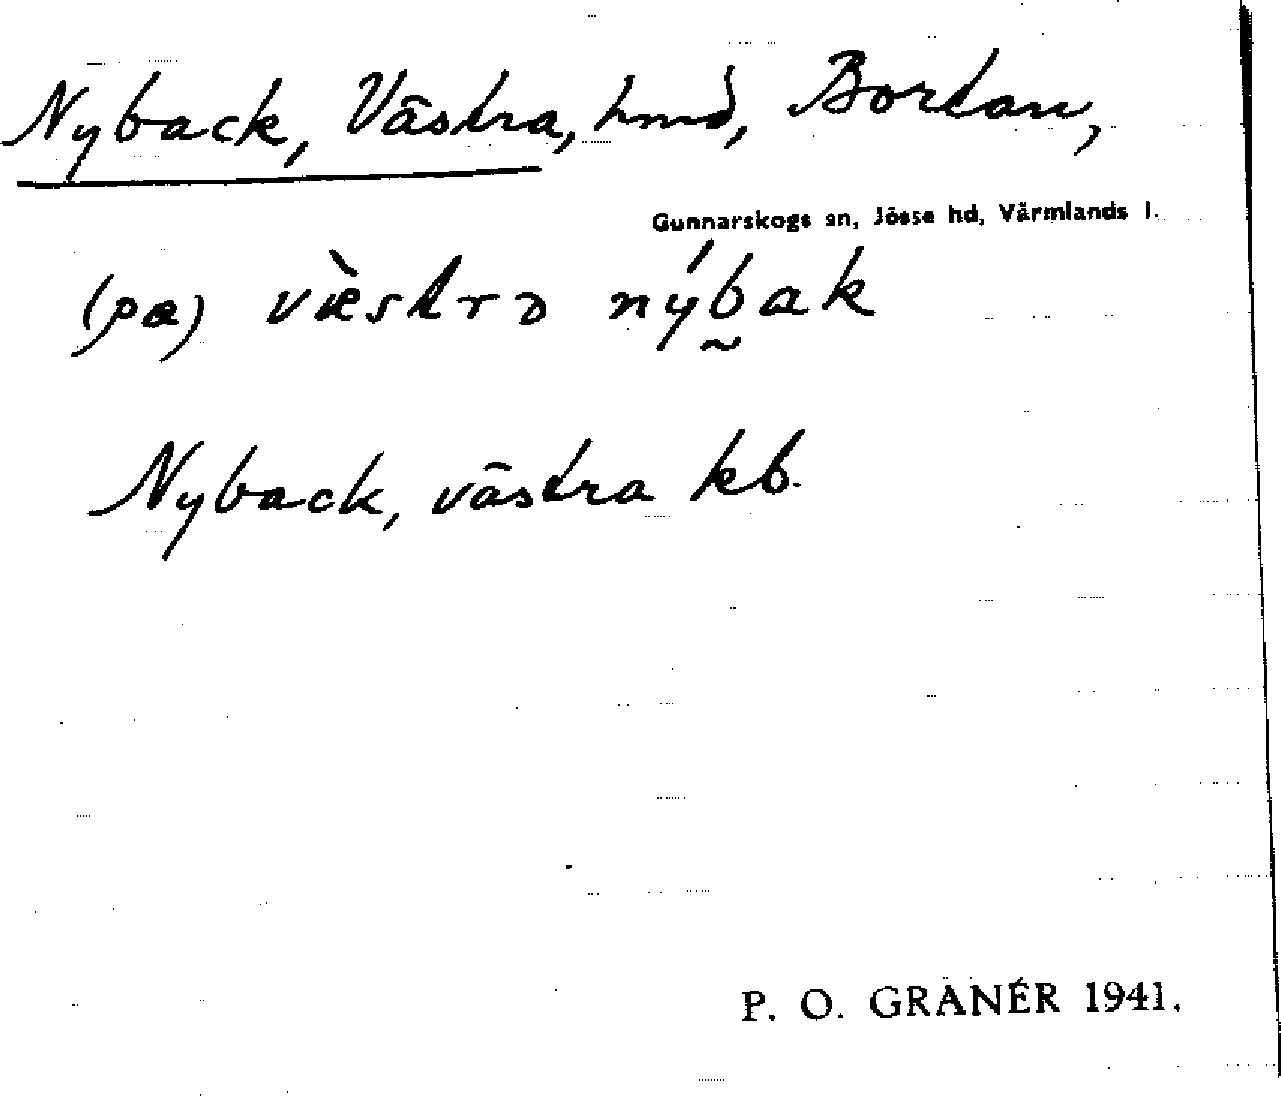 Nyback, Västra, hmd, Bortan,
Gunnarskogs sn, Jösse hd, Värmlands l.
(pa) væ̀strɔ nýb̰ak
Nyback, västra kb.
P. O. GRÄNÉR 1941.